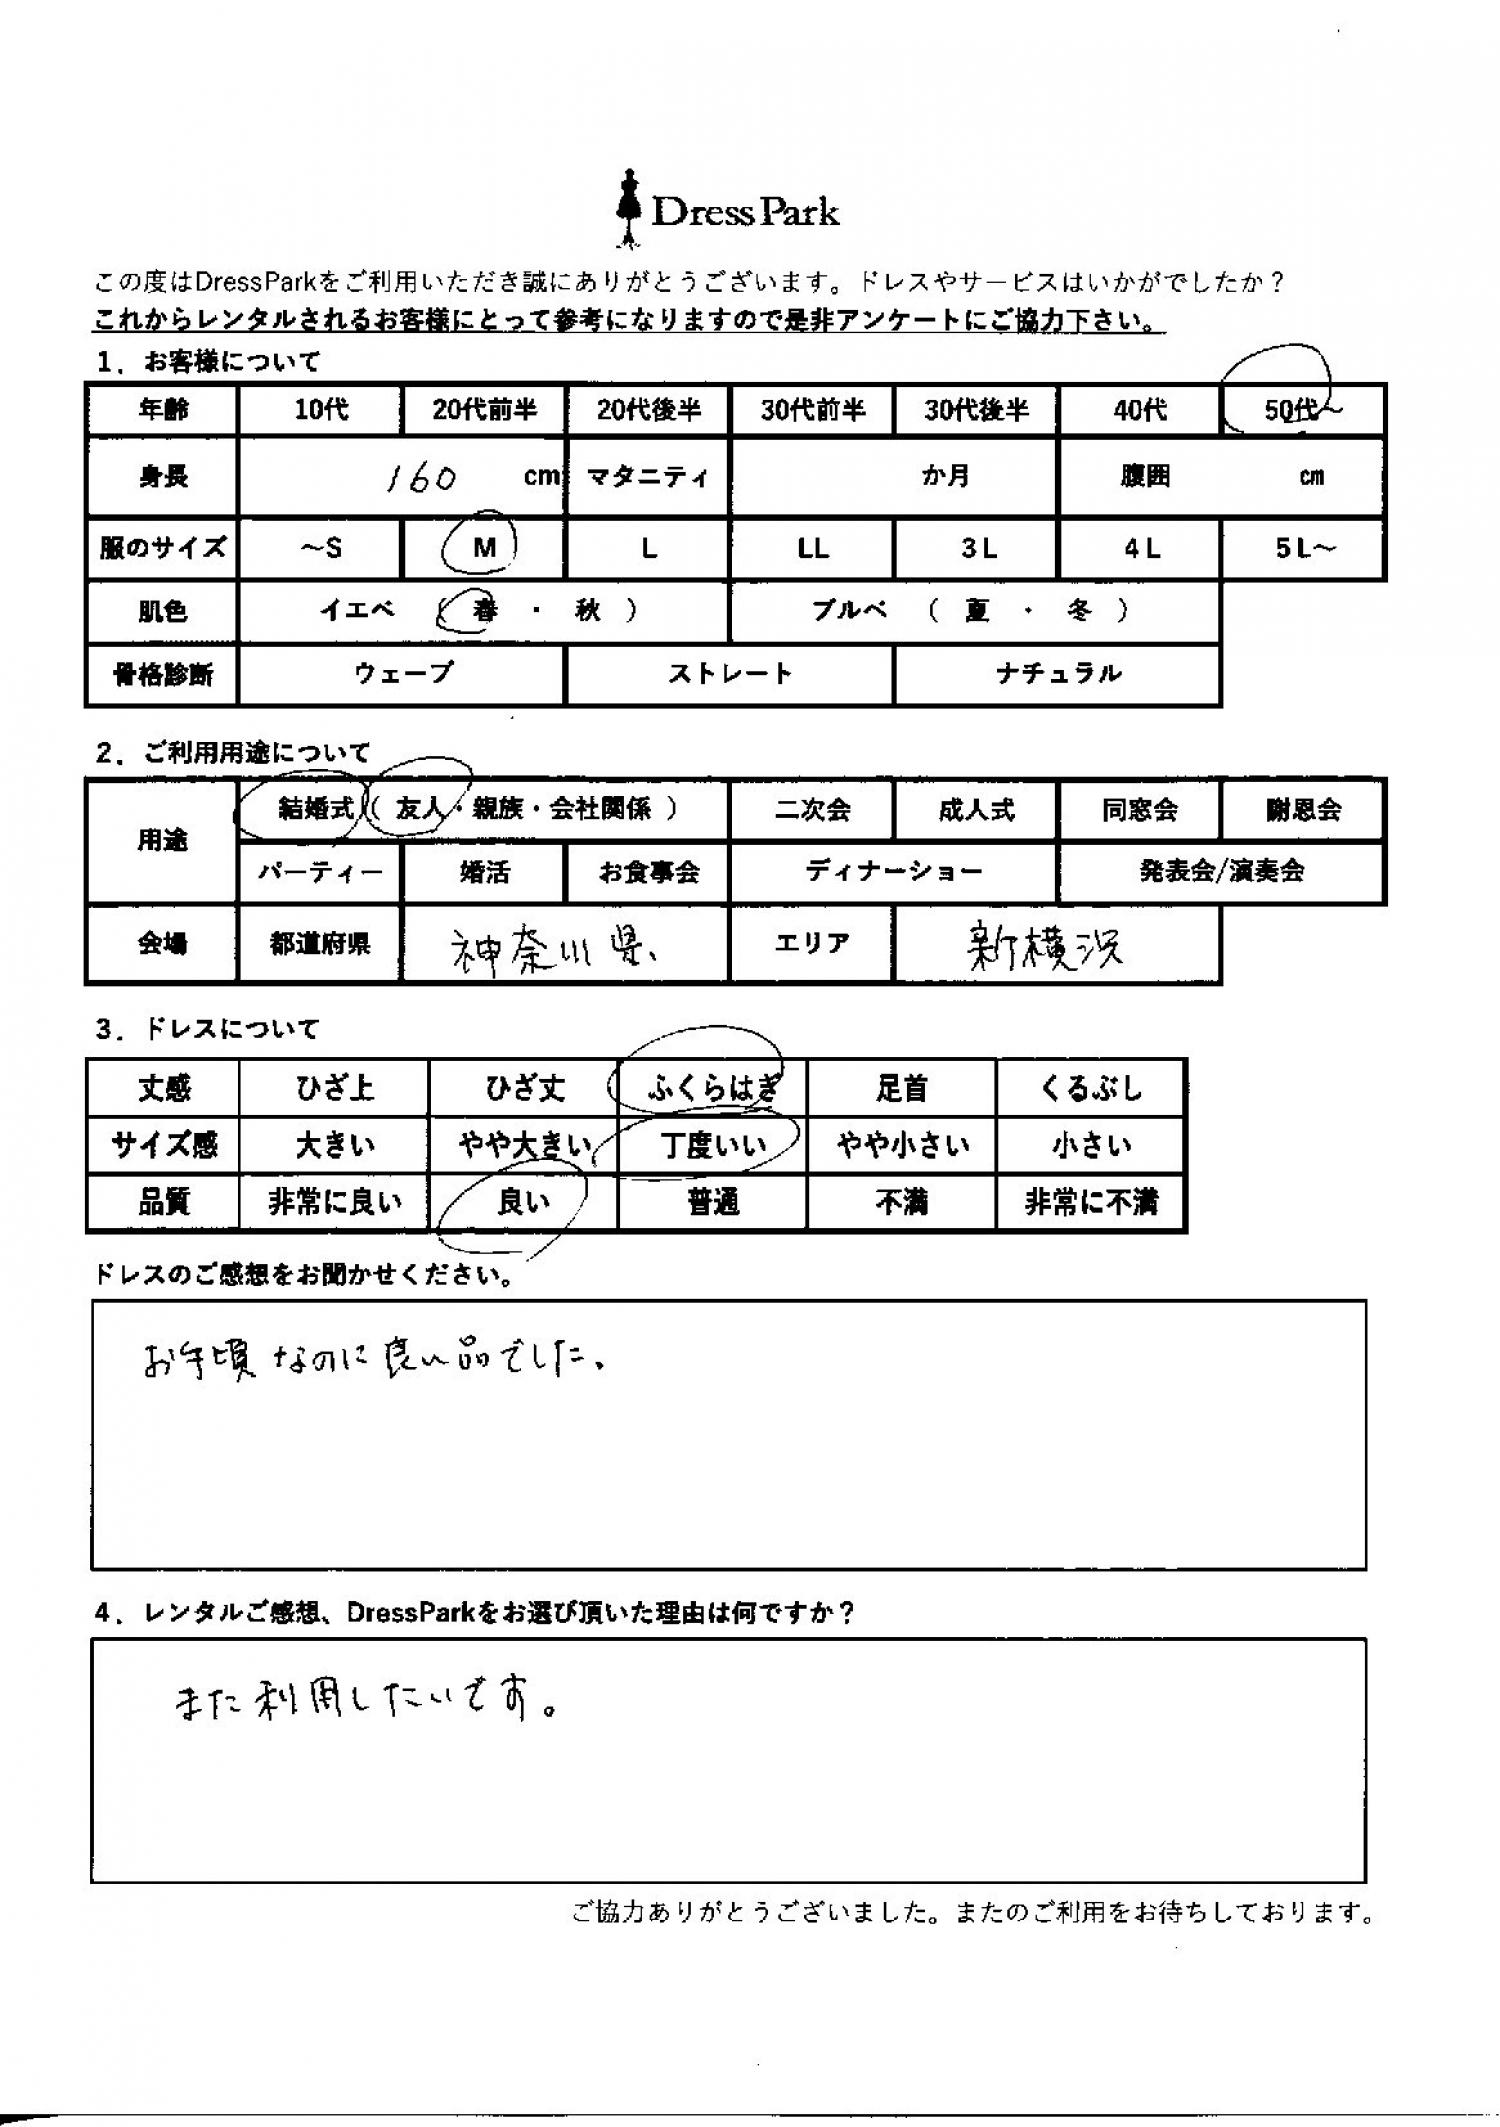 DressPark
この度はDressParkをご利用いただき誠にありがとうございます。ドレスやサービスはいかがでしたか?
これからレンタルされるお客様にとって参考になりますので是非アンケートにご協力下さい。
1．お客様について
年齢 10代 20代前半 20代後半 30代前半 30代後半 40代 50代～
身長 160 cm マタニティ か月 腹囲 cm
服のサイズ ～S M L LL 3L 4L 5L～
肌色 イエベ ( 春 ・ 秋 ) ブルベ ( 夏 ・ 冬 )
骨格診断 ウェーブ ストレート ナチュラル
2．ご利用用途について
用途 結婚式 ( 友人・親族・会社関係 ) 二次会 成人式 同窓会 謝恩会
パーティー 婚活 お食事会 ディナーショー 発表会/演奏会
会場 都道府県 神奈川県、 エリア 新横浜
3．ドレスについて
丈感 ひざ上 ひざ丈 ふくらはぎ 足首 くるぶし
サイズ感 大きい やや大きい 丁度いい やや小さい 小さい
品質 非常に良い 良い 普通 不満 非常に不満
ドレスのご感想をお聞かせください。
お手頃なのに良い品でした、
4．レンタルご感想、DressParkをお選び頂いた理由は何ですか?
また利用したいです。
ご協力ありがとうございました。またのご利用をお待ちしております。